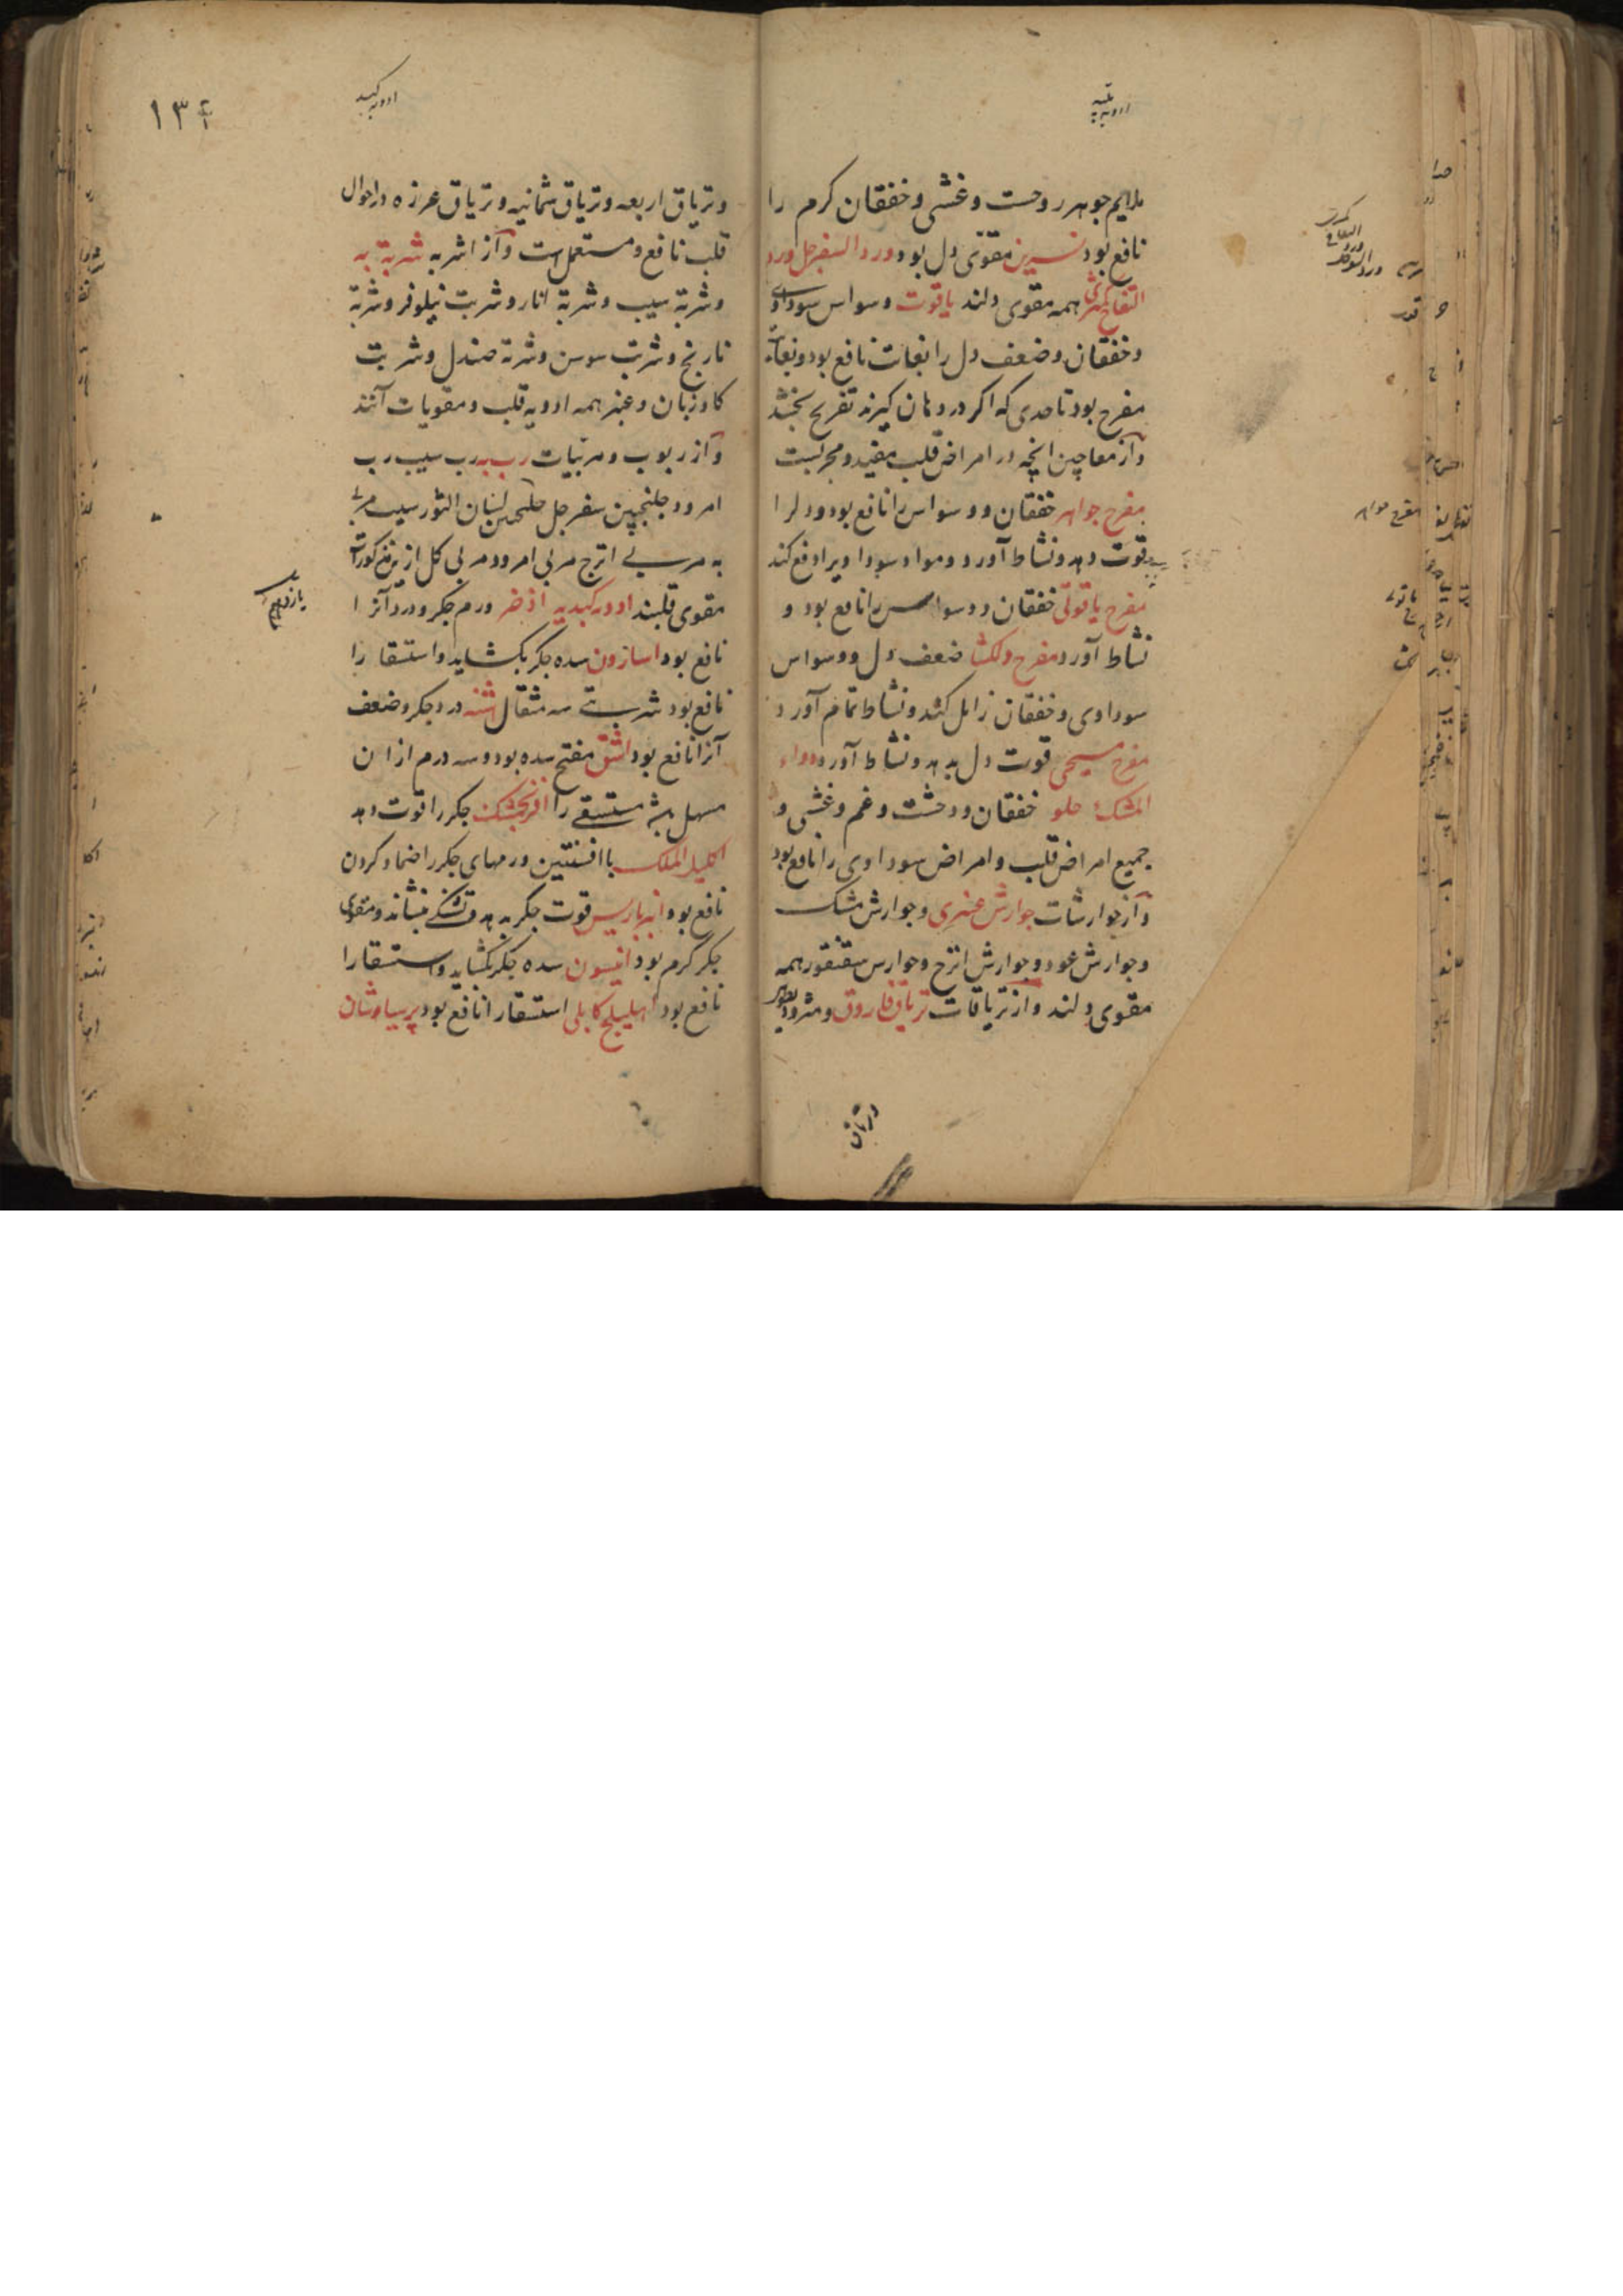 ادویه قلبیه
ملایم جوهر روحست و غشی و خفقان کرم را
نافع بود نسرین مقوی دل بود ورد السفرجل ورد
التفاح کمثری همه مقوی دلند یاقوت وسواس سوداوی
و خفقان و ضعف دل را بغایت نافع بود و بغایت
مفرح بود تا حدی که اکر در دهان کیرند تفریح بخشد
و از معاجین انچه در امراض قلب مفید و مجربست
مفرح جواهر خفقان و وسواس را نافع بود و دلرا
قوت دهد و نشاط آورد و مواد سوداویرا دفع کند
مفرح یاقوتی خفقان و وسواس را نافع بود و
نشاط آورد مفرح دلکشا ضعف دل و وسواس
سوداوی و خفقان زایل کند و نشاط تمام آورد
مفرح مسیحی قوت دل بدهد و نشاط آورد دواء
المسک حلو خفقان و وحشت و غم و غشی و
جمیع امراض قلب و امراض سوداوی را نافع بود
و از جوارشات جوارش عنبری و جوارش مشک
و جوارش عود و جوارش اترج و جوارس سقنقور همه
مقوی دلند و از تریاقات تریاق فاروق و مثرودیطوس
وتریاق
مفرح جواهر
ادویه کبدیه
۱۳۴
و تریاق اربعه و تریاق ثمانیه و تریاق عرزه در احوال
قلب نافع و مستعمل است و از اشربه شربة به
و شربة سیب و شربة انار و شربت نیلوفر و شربة
نارنج و شربت سوسن و شربة صندل و شربت
کاوزبان و عنبر همه ادویه قلب و مقویات آنند
و از ربوب و مربیات رب به رب سیب رب
امرود جلنجبین سفرجل جلنجبین لسان الثور سیب مربی
به مربی اترج مربی امرود مربی کل ازین مذکورات
مقوی قلبند ادویه کبدیه اذخر ورم جکر و درد آنرا
نافع بود اسارون سده جکر بکشاید و استسقا را
نافع بود شربتی سه مثقال اشنه درد جکر و ضعف
آنرا نافع بود اشق مفتح سده بود و سه درم از ان
مسهل بود مستسقی را افرنجمشک جکر را قوت دهد
اکلیل الملک با افسنتین ورمهای جکر را ضماد کردن
نافع بود انبرباریس قوت جکر بدهد و تشنکی بنشاند و مقوی
جکر کرم بود انیسون سده جکر بکشاید و استسقا را
نافع بود اهلیلج کابلی استسقا را نافع بود پرسیاوشان
یازدهم